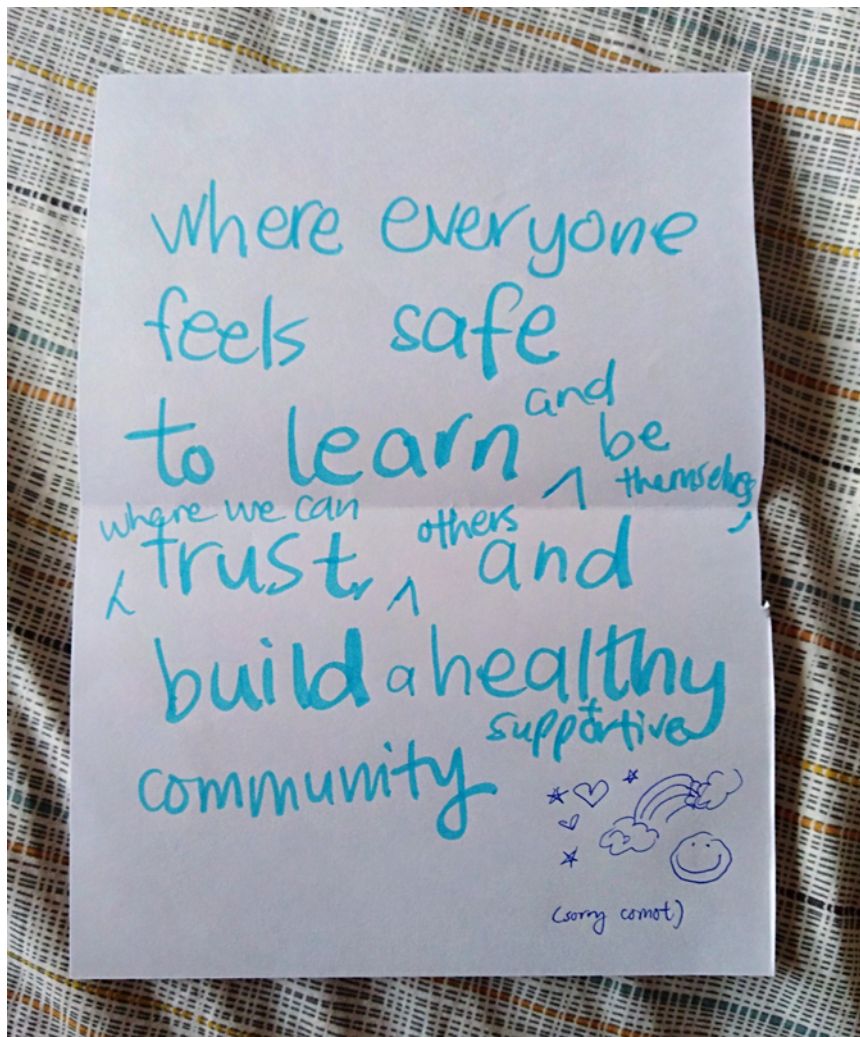 where everyone
feels safe
to learn and be themselves,
where we can trust, others and
build a healthy
+ supportive
community
(sorry comot)